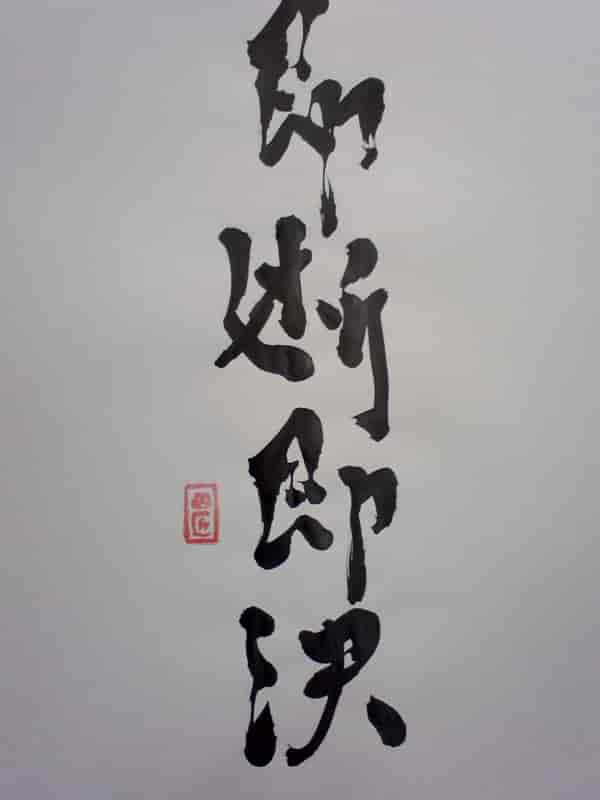 即断即決